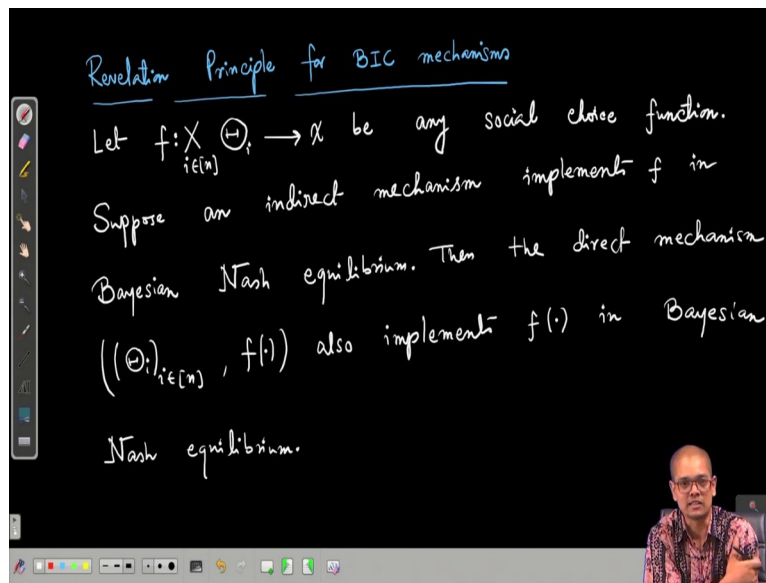 Revelation Principle for BIC mechanisms
Let f: X Θi → X be any social choice function.
i∈[n]
Suppose an indirect mechanism implements f in
Bayesian Nash equilibrium. Then the direct mechanism
((Θi)i∈[n], f(·)) also implements f(·) in Bayesian
Nash equilibrium.